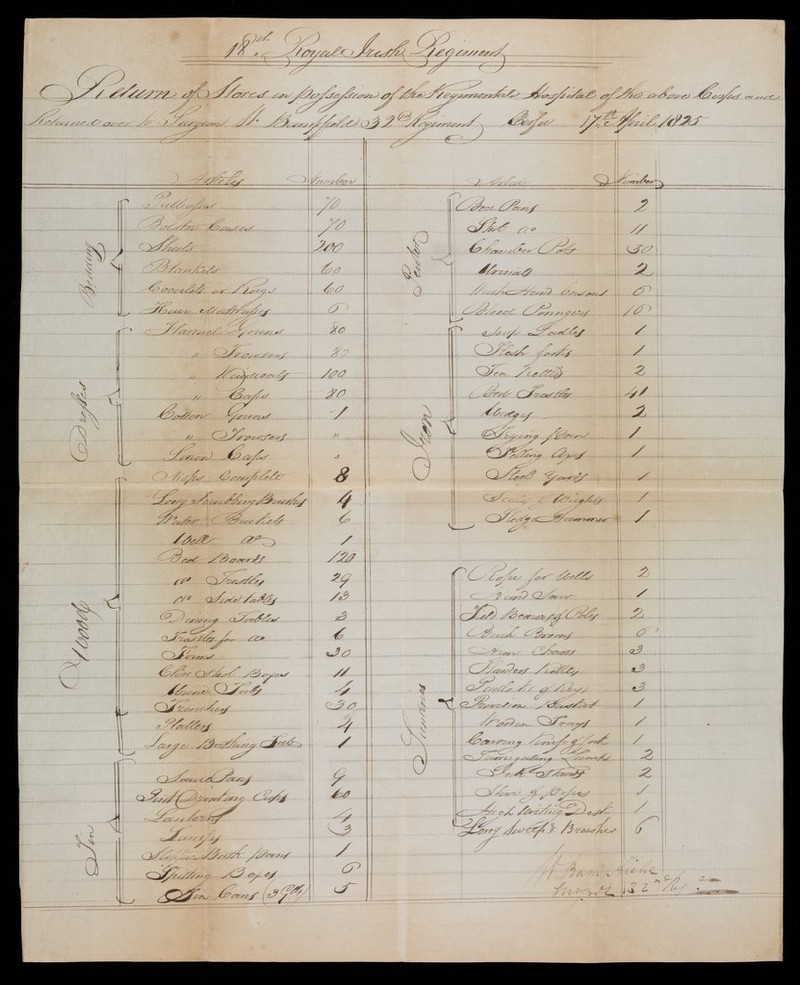 18th Royal Irish Regiment
Return of Stores in possession of the Regimental Hospital of the above Corps and
Returned over to Surgeon W. Bampfield 32nd Regiment Corfu 17th April 1825
Articles Number
Bedding
Pillowcases 70
Bolster Cases 70
Sheets 200
Blankets 60
Coverlets or Rugs 60
Hair Mattrasses 6
Dresses
Flannel Gowns 80
" Trowsers 80
" Waistcoats 100
" Caps 80
Cotton Gowns 1
" Trowsers "
Linen Caps "
Complete 8
Wood
Long Scrubbing Brushes 4
Water Buckets 6
Well do 1
Bed Boards 120
do Trestles 29
do Side Tables 13
Dining Tables 3
Trestles for do 6
Forms 30
Close Stool Boxes 11
Urine Tubs 4
Trenchers 30
Platters 4
Large Bathing Tub 1
Tin
Sauce Pans 9
Pint Drinking Cups 60
Lanterns 4
Lamps 3
Slipper Bath 1
Spitting Boxes 6
Tin Cans 5
Articles Number
Pewter
Bed Pans 2
Stool do 11
Chamber Pots 50
Urinals 2
Wash Hand basons 6
Blood Poringers 10
Iron
Soup Ladles 1
Flesh forks 1
Tea Kettles 2
Bed Trestles 41
Wedges 2
Frying Pan 1
Felling Axes 1
Steel Yards 1
Scales & Weights 1
Sledge Hammer 1
Sundries
Rope for Wells 2
Hand Saw 1
Field Bearers & Poles 2
Birch Brooms 6
Arm Chairs 3
3
Padlocks & Keys 3
Provision Basket 1
Wooden Trays 1
Carving Knife & fork 1
Fumigating Lamps 2
Ink Stands 2
1
High Writing Desk 1
Long Sweepg Brushes 6
W Bampfield
Surgeon 32nd Regt